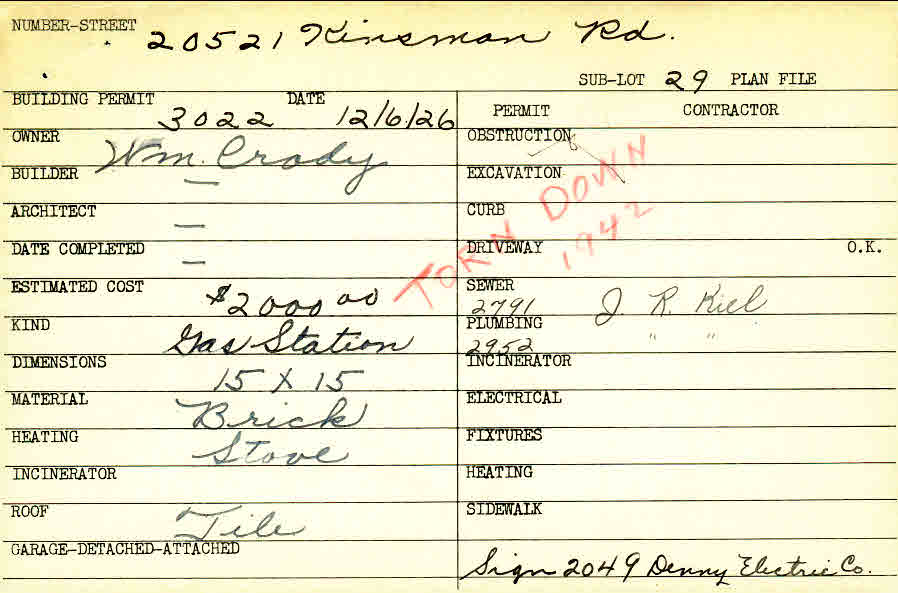 NUMBER-STREET 20521 Kinsman Rd.
SUB-LOT 29 PLAN FILE
BUILDING PERMIT 3022 DATE 12/6/26
OWNER Wm. Crody
BUILDER —
ARCHITECT —
DATE COMPLETED —
ESTIMATED COST $2000.00
KIND Gas Station
DIMENSIONS 15 X 15
MATERIAL Brick
HEATING Stove
INCINERATOR
ROOF Tile
GARAGE-DETACHED-ATTACHED
PERMIT CONTRACTOR
OBSTRUCTION
EXCAVATION
CURB
DRIVEWAY O.K.
SEWER 2791 J. R. Kiel
PLUMBING 2952 " "
INCINERATOR
ELECTRICAL
FIXTURES
HEATING
SIDEWALK
Sign 2049 Denny Electric Co.
TORN DOWN
1942